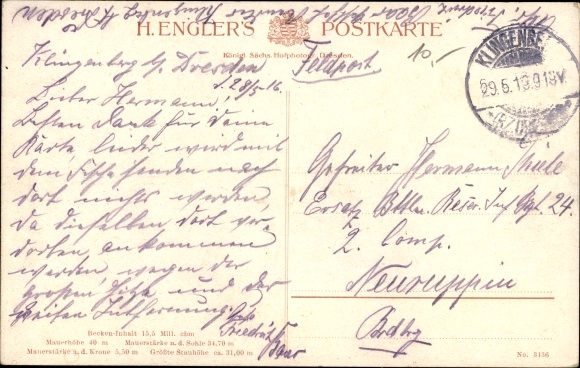 H. ENGLER'S POSTKARTE
Königl. Sächs. Hofphotogr. Dresden.
10,-
Feldpost
KLINGENBE
29.5.16.9-10V
Klingenberg b/ Dresden
d. 28/5 16
Lieber Hermann!
Besten Dank für Deine
Karte leider wird mit
dem Fische senden nach
dort nichts werden,
da dieselben dort ver-
dorben ankommen
werden, wegen der
großen Hitze und der
weiten Entfernung. Gruß
Friedrich
Baar
Gefreiter Hermann Thiele
Ersatz Battln. Reser. Inf. Rgt. 24.
2. Comp.
Neuruppin
Brdbg
Becken-Inhalt 15,5 Mill. cbm
Mauerhöhe 40 m Mauerstärke a. d. Sohle 34,70 m
Mauerstärke a. d. Krone 5,50 m Größte Stauhöhe ca. 31,00 m
No. 3136